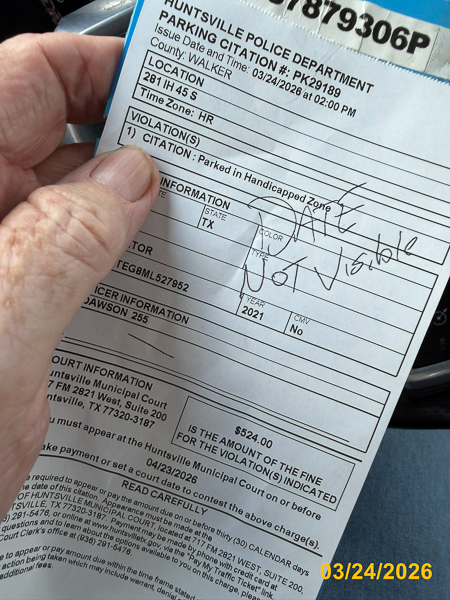 7879306P
HUNTSVILLE POLICE DEPARTMENT
PARKING CITATION #: PK29189
Issue Date and Time: 03/24/2026 at 02:00 PM
County: WALKER
LOCATION
281 IH 45 S
Time Zone: HR
VIOLATION(S)
1) CITATION : Parked in Handicapped Zone
DATE
NOT Visible
INFORMATION
STATE
TX
COLOR
TYPE
TOR
TEG8ML527852
YEAR
2021
CMV
No
CER INFORMATION
DAWSON 255
OURT INFORMATION
untsville Municipal Court
7 FM 2821 West, Suite 200
ntsville, TX 77320-3187
$524.00
IS THE AMOUNT OF THE FINE
FOR THE VIOLATION(S) INDICATED
u must appear at the Huntsville Municipal Court on or before
04/23/2026
ake payment or set a court date to contest the above charge(s).
READ CAREFULLY
e required to appear or pay the amount due on or before thirty (30) CALENDAR days
he date of this citation. Appearance must be made at the
OF HUNTSVILLE MUNICIPAL COURT, located at 717 FM 2821 WEST, SUITE 200,
TSVILLE, TX 77320-3187. Payment may be made by phone with credit card at
) 291-5476, or online at www.huntsvilletx.gov, via the "Pay My Traffic Ticket" link.
questions and to learn about the options available to you on this charge, please
Court Clerk's office at (936) 291-5476
e to appear or pay amount due within the time frame stated
action being taken which may include warrant, denial
additional fees.
03/24/2026